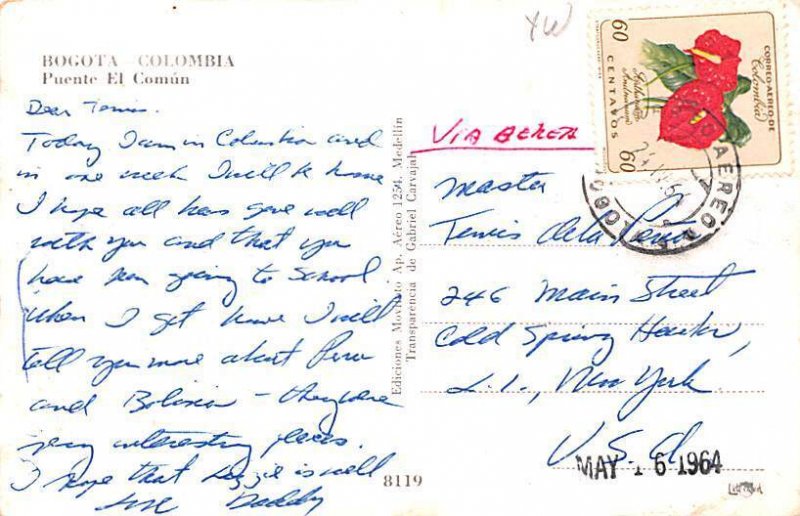 BOGOTA - COLOMBIA
Puente El Común
Dear Tennis.
Today I am in Columbia and
in one week I will be home
I hope all has gone well
with you and that you
have been going to School
When I get home I will
tell you more about Peru
and Bolivia - they are
very interesting places.
I hope that Lizzie is well
Love Daddy
Ediciones Movifoto Ap. Aéreo 1254, Medellín
Transparencia de Gabriel Carvajal
8119
XW
VIA AEREA
Master
Tennis de la
246 Main Street
Cold Spring Harbor,
L.I., New York
U.S.A.
MAY 16 1964
CORREO-AEREO-DE
Colombia
60
CENTAVOS
60
AEREO